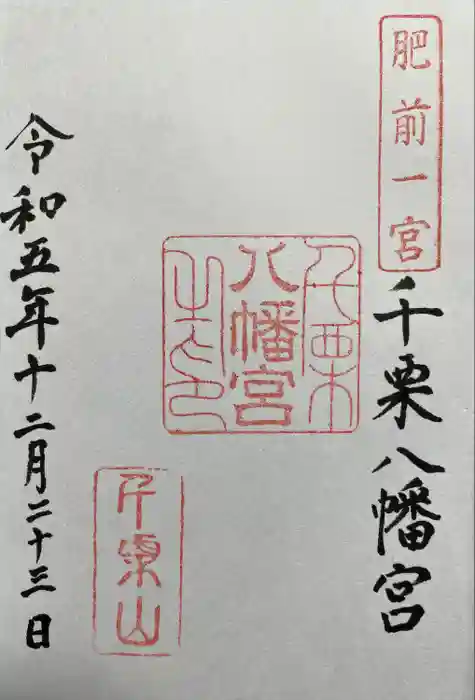 肥前一宮
千栗八幡宮
千栗
八幡宮
之印
千栗山
令和五年十二月二十三日